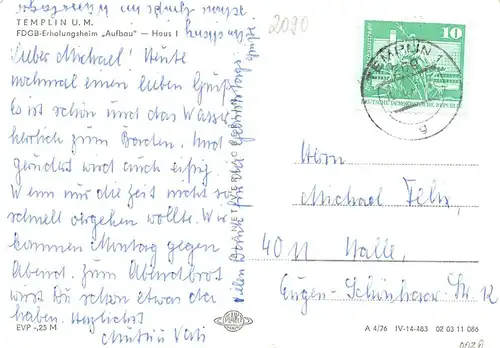 TEMPLIN U. M.
FDGB-Erholungsheim „Aufbau" — Haus I
Lieber Michael! Heute
nochmal einen lieben Gruß.
Es ist schön und das Wasser
herrlich zum Baden. Und
gerudert wird auch eifrig.
Wenn nur die Zeit nicht so
schnell vergehen wollte. Wir
kommen Montag gegen
Abend. Zum Abendbrot
wirst Du schon etwas da
haben. Herzlichst
Vati
Vielen Dank für die Geburtstags-
grüße.
EVP -,25 M
2090
10
DEUTSCHE DEMOKRATISCHE REPUBLIK
TEMPLIN 1
g
Herrn
Michael Felix,
40 11 Halle,
Eugen-Schönhaar-Str. 12
PLANET VERLAG BERLIN
A 4/76 IV-14-483 02 03 11 086